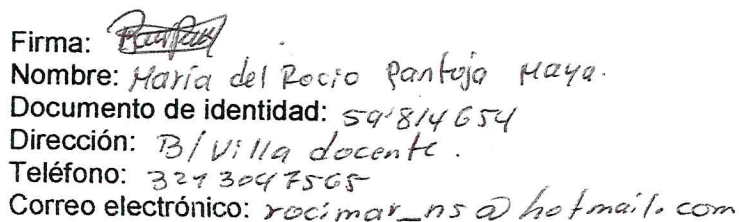 Firma:
Nombre: María del Rocio Pantoja Maya.
Documento de identidad: 59'814654
Dirección: B/ Villa docente.
Teléfono: 3213047565
Correo electrónico: rocimar_ns@hotmail.com